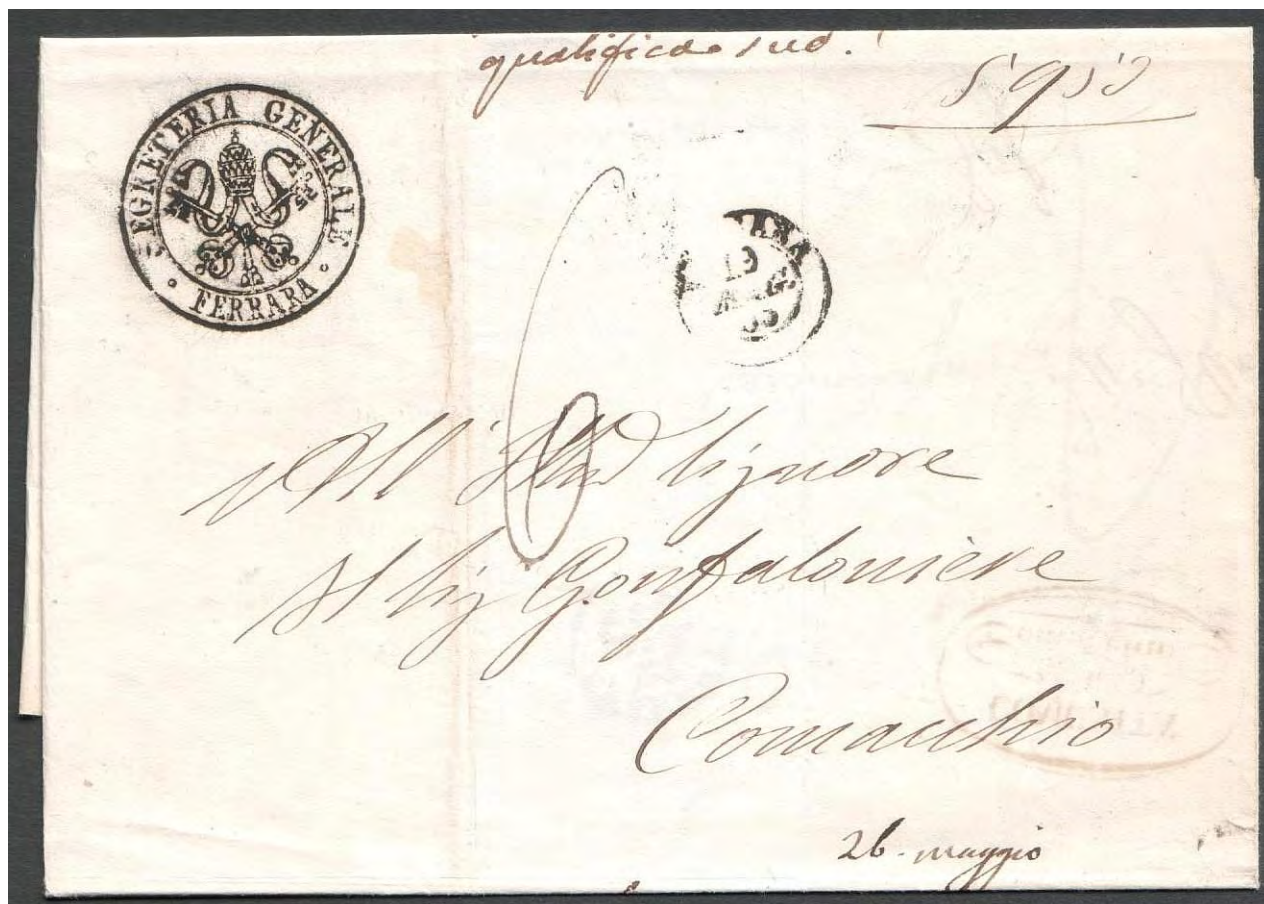 qualifica sud.
SEGRETERIA GENERALE
FERRARA
19
All' Signore
Il Sig Gonfaloniere
Comacchio
26 maggio